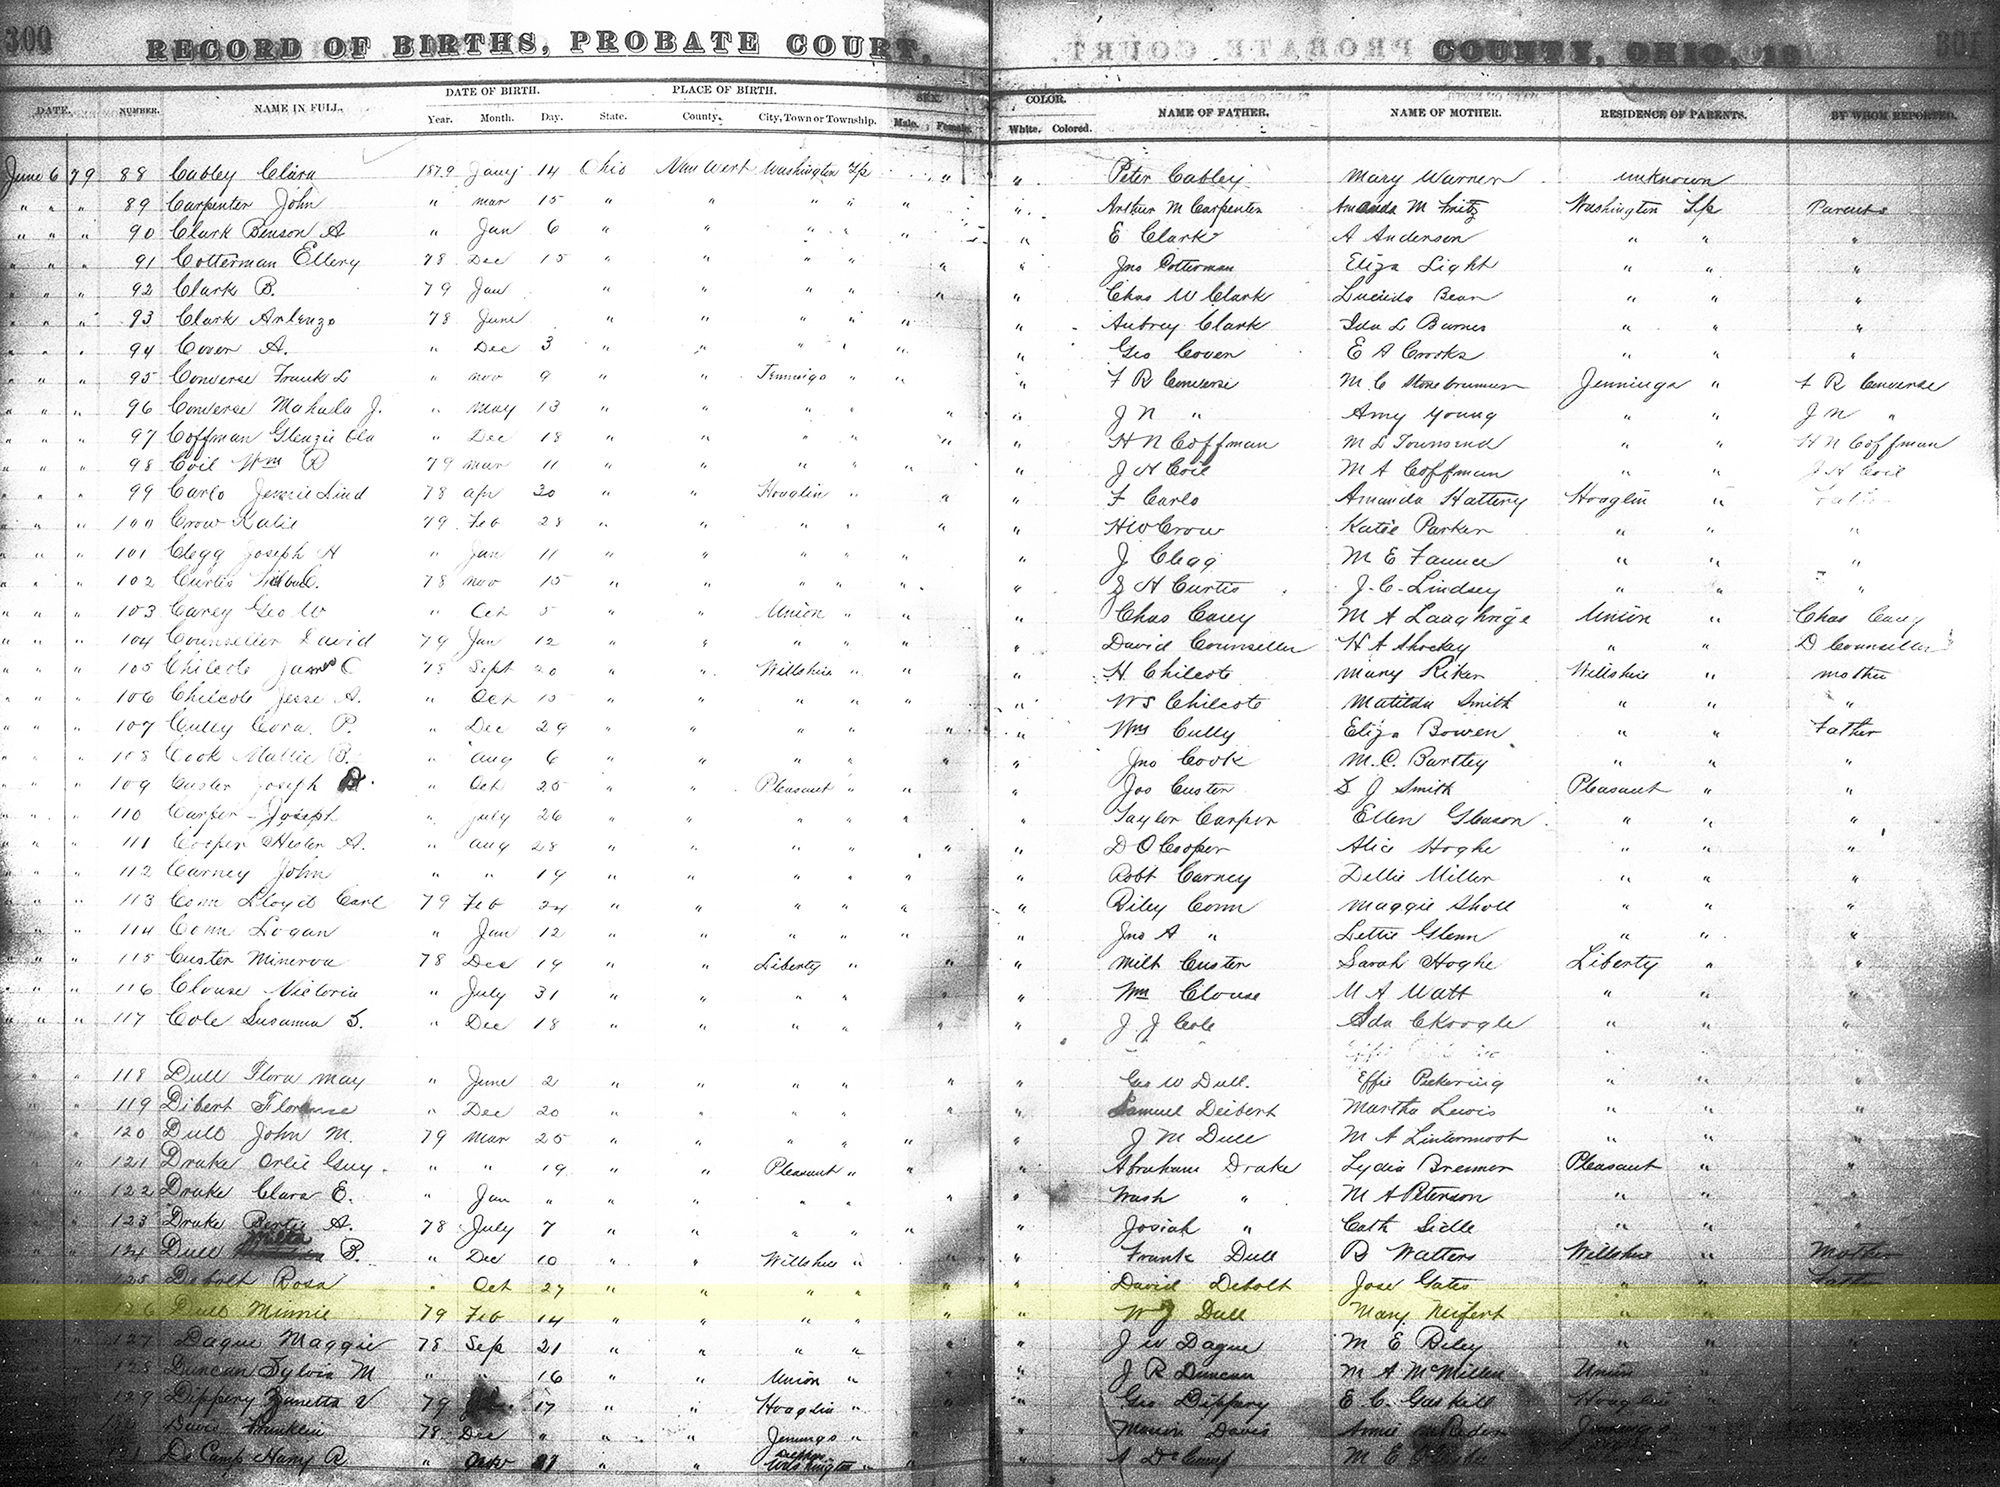 300
RECORD OF BIRTHS, PROBATE COURT, COUNTY, OHIO, 18
DATE. NUMBER. NAME IN FULL. DATE OF BIRTH. PLACE OF BIRTH. SEX. COLOR. NAME OF FATHER. NAME OF MOTHER. RESIDENCE OF PARENTS. BY WHOM REPORTED.
Year. Month. Day. State. County. City, Town or Township. Male. Female. White. Colored.
June 6 79 88 Cabley Clara 1879 Jany 14 Ohio Van Wert Washington Tp " " Peter Cabley Mary Warner unknown
" " " 89 Carpenter John " Mar 15 " " " " " " Arthur M Carpenter Amanda M Fritz Washington Tp Parents
" " " 90 Clark Benson A " Jan 6 " " " " " " E Clark A Anderson " " "
" " " 91 Cotterman Ellery 78 Dec 15 " " " " " " Jno Cotterman Eliza Light " " "
" " " 92 Clark B. 79 Jan " " " " " " Chas W Clark Lucinda Bear " " "
" " " 93 Clark Arlenzo 78 June " " " " " " Aubrey Clark Ida L Barnes " " "
" " " 94 Coven A. " Dec 3 " " " " " " Geo Coven E A Crooks " " "
" " " 95 Converse Frank L " Nov 9 " " Jennings " " " F R Converse M C Stonebrunner Jennings " F R Converse
" " " 96 Converse Mahala J. " May 13 " " " " " " J N " Amy Young " " J N "
" " " 97 Coffman Glenzie Ola " Dec 18 " " " " " " H N Coffman M L Townsend " " H N Coffman
" " " 98 Coil Wm R 79 Mar 11 " " " " " " J H Coil M A Coffman " " J H Coil
" " " 99 Carlo Jennie Lind 78 Apr 30 " " Hoaglin " " " F Carlo Amanda Hattery Hoaglin " Father
" " " 100 Crow Katie 79 Feb 28 " " " " " " H W Crow Katie Parker " " "
" " " 101 Clegg Joseph H " Jan 11 " " " " " " J Clegg M E Faunce " " "
" " " 102 Curtis C. 78 Nov 15 " " " " " " S H Curtis J. C. Lindsey " " "
" " " 103 Carey Geo W " Oct 5 " " Union " " " Chas Carey M A Laughrige Union " Chas Carey
" " " 104 Counseller David 79 Jan 12 " " " " " " David Counseller H A Shockey " " D Counseller
" " " 105 Chilcote James C 78 Sept 20 " " Willshire " " " H Chilcote Mary Riker Willshire " mother
" " " 106 Chilcote Jesse A. " Oct 15 " " " " " " W S Chilcote Matilda Smith " " "
" " " 107 Cully Cora P. " Dec 29 " " " " " " Wm Cully Eliza Bowen " " Father
" " " 108 Cook Mallie B. " Aug 6 " " " " " " Jno Cook M. C. Bartley " " "
" " " 109 Custer Joseph " Oct 25 " " Pleasant " " " Jos Custer S J Smith Pleasant " "
" " " 110 Carper Joseph " July 26 " " " " " " Taylor Carper Ellen Gleason " " "
" " " 111 Cooper Hester A. " Aug 28 " " " " " " D O Cooper Alice Hoghe " " "
" " " 112 Carney John " " 19 " " " " " " Robt Carney Dellie Miller " " "
" " " 113 Conn Lloyd Carl 79 Feb 24 " " " " " " Riley Conn Maggie Sholl " " "
" " " 114 Conn Logan " Jan 12 " " " " " " Jno A " Lettie Glenn " " "
" " " 115 Custer Minerva 78 Dec 19 " " Liberty " " " Milt Custer Sarah Hoghe Liberty " "
" " " 116 Clouse Victoria " July 31 " " " " " " Wm Clouse M A Watt " " "
" " " 117 Cole Susanna S. " Dec 18 " " " " " " J. J Cole Ada Ckoogle " " "
" " 118 Dull Flora May " June 2 " " " " " " Geo W Dull. Effie Pickering " " "
" " 119 Dibert Florence " Dec 20 " " " " " " Samuel Deibert Martha Lewis " " "
" " 120 Dull John M. 79 Mar 25 " " " " " " J M Dull M A Lintermoot " " "
" " 121 Drake Orlie Guy. " " 19 " " Pleasant " " " Abraham Drake Lydia Bremer Pleasant " "
" " 122 Drake Clara E. " Jan " " " " " " " Wash " M A Peterson " " "
" " 123 Drake Bertie A. 78 July 7 " " " " " " Josiah " Cath Sidle " " "
" " 124 Dull B. " Dec 10 " " Willshire " " " Frank Dull R Watters Willshire " Mother
" " 125 Debolt Rosa " Oct 27 " " " " " " David Debolt Jose Gates " " Father
" " 126 Dull Minnie 79 Feb 14 " " " " " " W J Dull Mary Neifert " " "
" " 127 Dague Maggie 78 Sep 21 " " " " " J W Dague M E Riley " " "
128 Duncan Sylvia M " " 16 " " Union " " J R Duncan M A McMillen Union "
129 Dippery V 79 17 " " Hoaglin " " Geo Dippery E. C. Gaskill Hoaglin "
Davis Franklin 78 Dec " " " Jennings " " Marion Davis Annie Jennings
De Camp Harry R. " 27 " " Washington " " De Camp M E